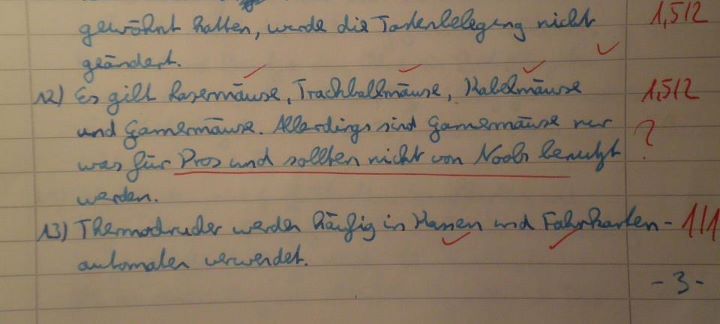 gewöhnt hatten, wurde die Tastenbelegung nicht 1,5/2
geändert.
12) Es gilt Lasermäuse, Trackballmäuse, Kabelmäuse 1,5/2
und Gamermäuse. Allerdings sind Gamermäuse nur ?
was für Pros und sollten nicht von Noobs benutzt
werden.
13) Thermodrucker werden häufig in Kassen und Fahrkarten- 1/1
automaten verwendet.
- 3 -